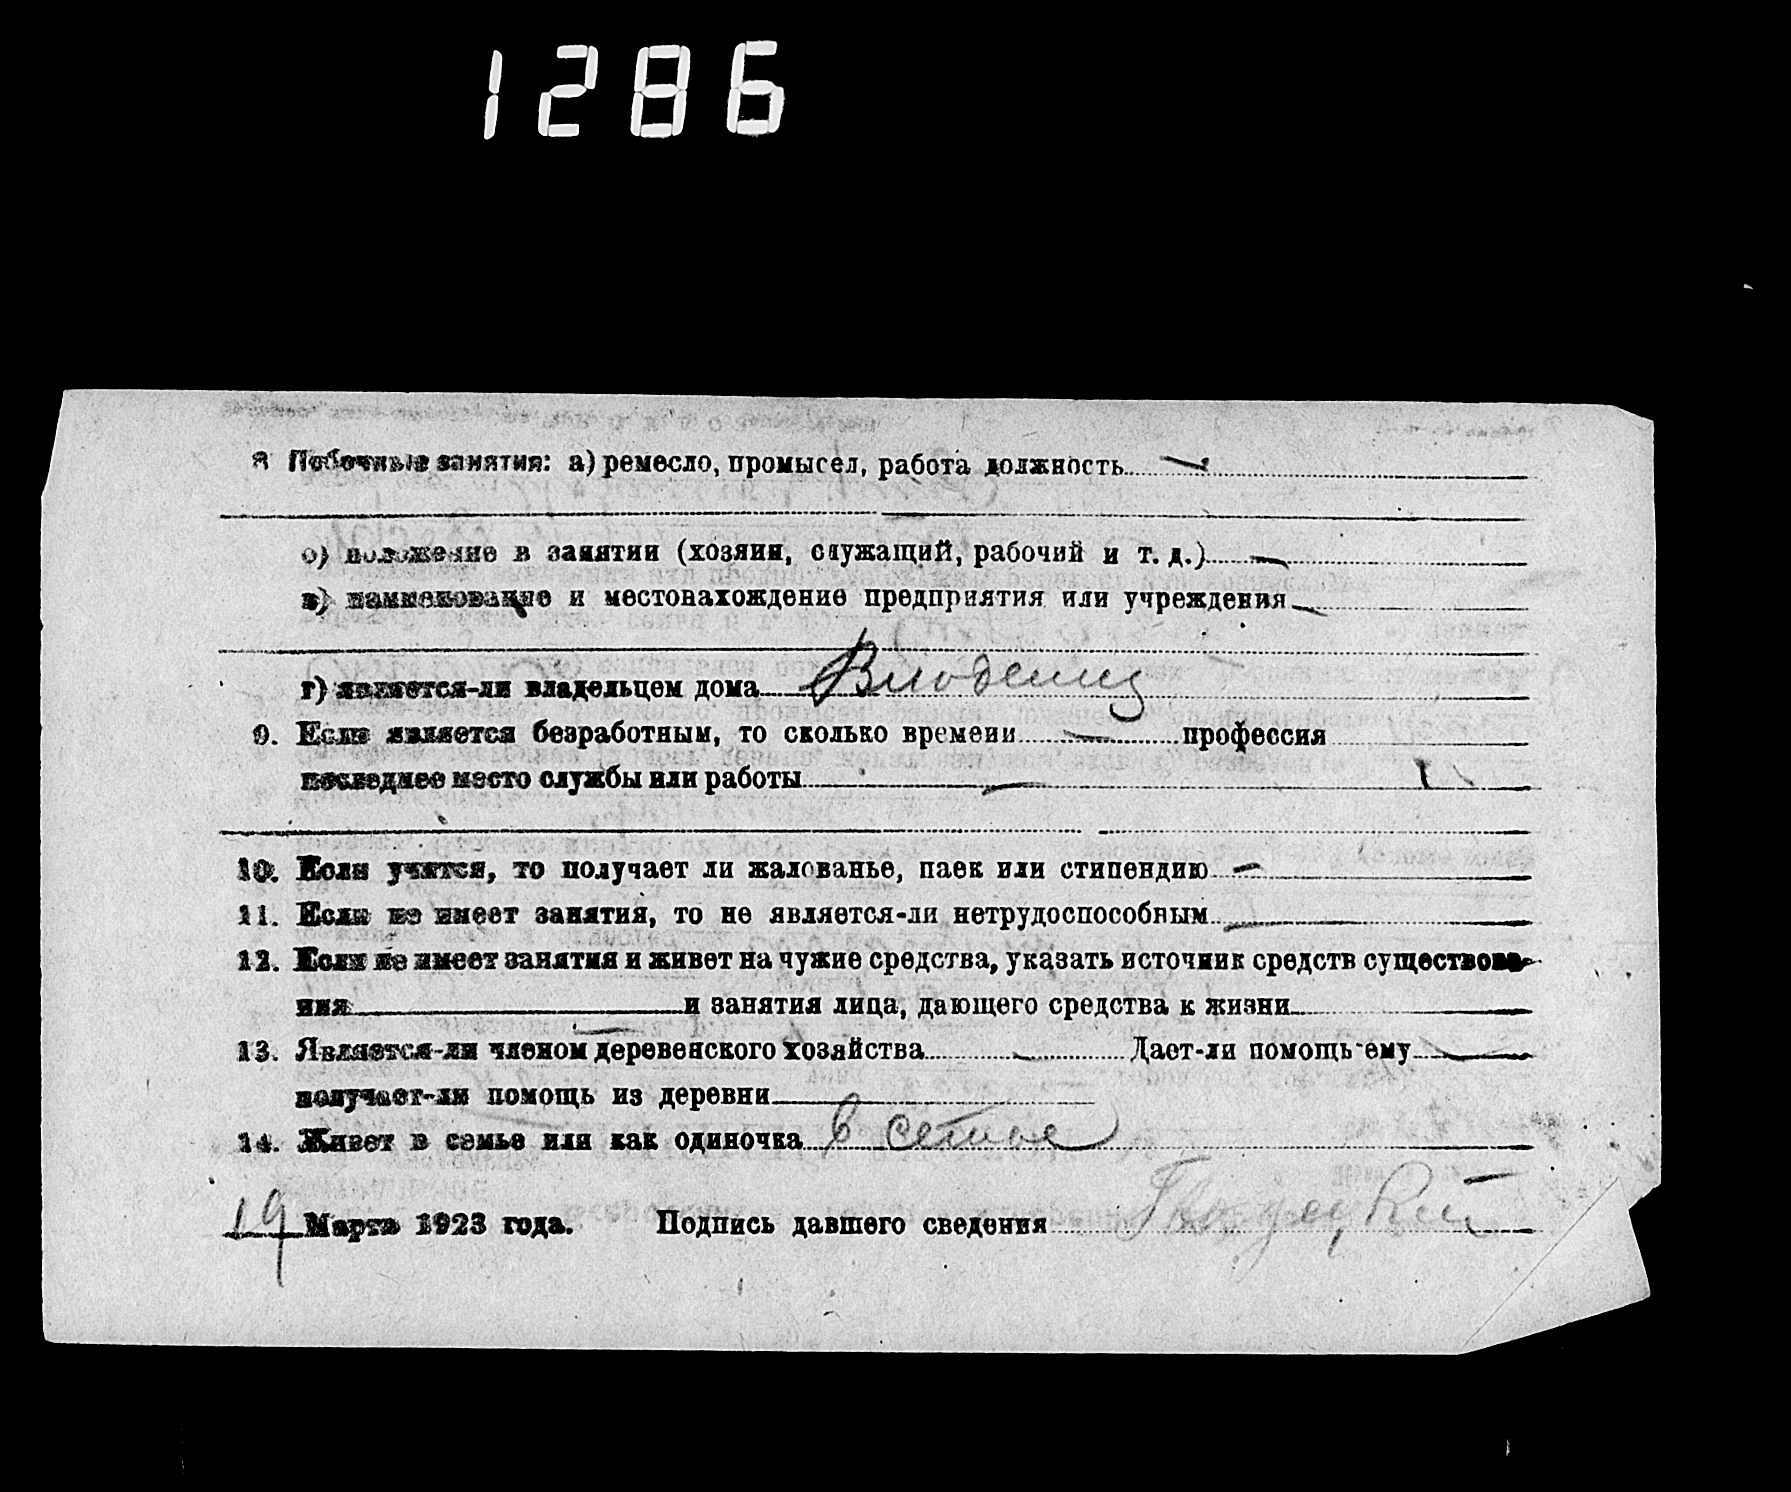 1286
8 Побочные занятия: а) ремесло, промысел, работа должность —
б) положение в занятии (хозяин, служащий, рабочий и т. д.) —
в) наименование и местонахождение предприятия или учреждения —
г) является-ли владельцем дома
9. Если является безработным, то сколько времени — профессия
последнее место службы или работы —
10. Если учится, то получает ли жалованье, паек или стипендию —
11. Если не имеет занятия, то не является-ли нетрудоспособным —
12. Если не имеет занятия и живет на чужие средства, указать источник средств существова-
ния — и занятия лица, дающего средства к жизни
13. Является-ли членом деревенского хозяйства — Дает-ли помощь ему —
получает-ли помощь из деревни
14. Живет в семье или как одиночка в семье
19 Марта 1923 года. Подпись давшего сведения